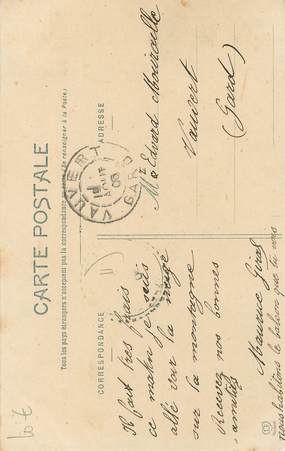 CARTE POSTALE
Tous les pays étrangers n'acceptent pas la correspondance (se renseigner à la Poste)
CORRESPONDANCE
ADRESSE
Il fait très frais
ce matin je suis
allé voir la neige
sur la montagne
Recevez nos bonnes
amitiés
Maurice
nous habitons le balcon que tu vois
Mr Edouard
Vauvert
(Gard)
VAUVERT
AOUT
08
GARD
lot